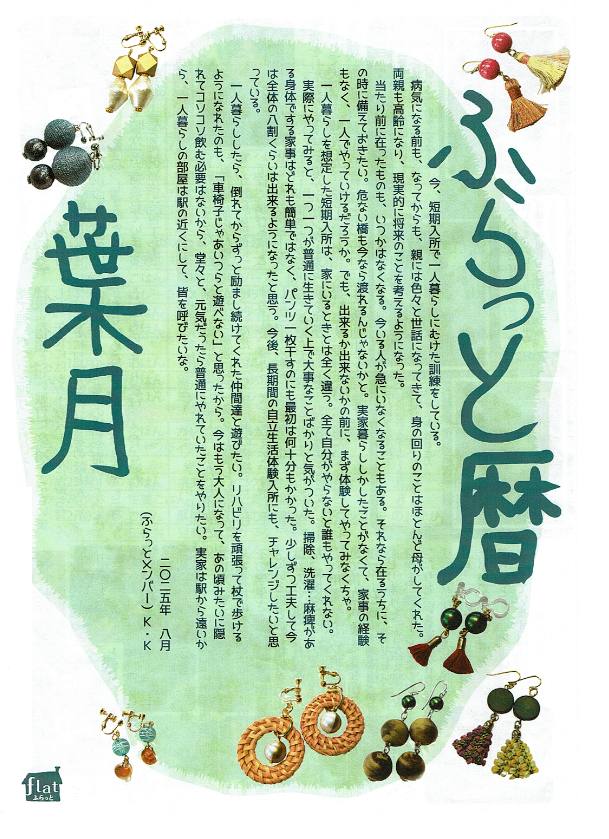 ぷらっと暦
葉月
今、短期入所で一人暮らしにむけた訓練をしている。
病気になる前も、なってからも、親には色々と世話になってきて、身の回りのことはほとんど母がしてくれた。
両親も高齢になり、現実的に将来のことを考えるようになった。
当たり前に在ったものも、いつかはなくなる。今いる人が急にいなくなることもある。それなら在るうちに、そ
の時に備えておきたい。危ない橋も今なら渡れるんじゃないかと。実家暮らししかしたことがなくて、家事の経験
もなく、一人でやっていけるだろうか。でも、出来るか出来ないかの前に、まず体験してやってみなくちゃ。
一人暮らしを想定した短期入所は、家にいるときとは全く違う。全て自分がやらないと誰もやってくれない。
実際にやってみると、一つ一つが普通に生きていく上で大事なことばかりと気がついた。掃除、洗濯…麻痺があ
る身体でする家事はどれも簡単ではなく、パンツ一枚干すのにも最初は何十分もかかった。少しずつ工夫して今
は全体の八割くらいは出来るようになったと思う。今後、長期間の自立生活体験入所にも、チャレンジしたいと思
っている。
一人暮らししたら、倒れてからずっと励まし続けてくれた仲間達と遊びたい。リハビリを頑張って杖で歩ける
ようになれたのも、「車椅子じゃあいつらと遊べない」と思ったから。今はもう大人になって、あの頃みたいに隠
れてコソコソ飲む必要はないから、堂々と、元気だったら普通にやれていたことをやりたい。実家は駅から遠いか
ら、一人暮らしの部屋は駅の近くにして、皆を呼びたいな。
二〇二五年 八月
(ぷらっとメンバー) K・K
flat
ふらっと